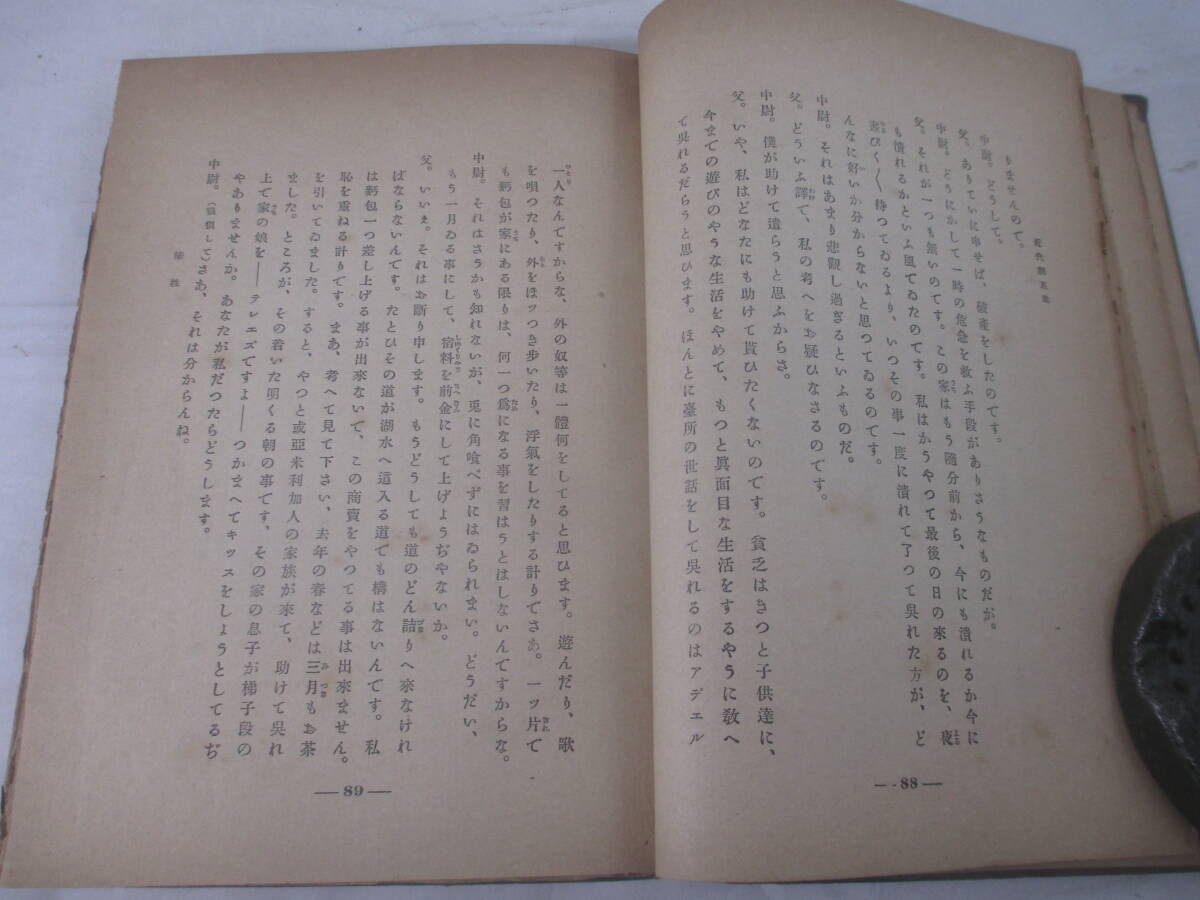 近代劇五曲
りませんのて。
中尉。どうして。
父。ありていに申せば、破産をしたのてす。
中尉。どうにかして一時の危急を救ふ手段がありさうなものだが。
父。それが一つも無いのてす。この家はもう隨分前から、今にも潰れるか今に
も潰れるかといふ風てゐたのてす。私はかうやつて最後の日の來るのを、夜
晝びく〳〵待つてゐるより、いつその事一度に潰れて了つて吳れた方が、ど
んなに好いか分からないと思つてゐるのてす。
中尉。それはあまり悲觀し過ぎるといふものだ。
父。どういふ譯て、私の考へをお疑ひなさるのてす。
中尉。僕が助けて遣らうと思ふからさ。
父。いや、私はどなたにも助けて貰ひたくないのてす。貧乏はきつと子供達に、
今までの遊びのやうな生活をやめて、もつと眞面目な生活をするやうに敎へ
て吳れるだらうと思ひます。ほんとに臺所の世話をして吳れるのはアデエル
— 88 —
一人なんですからな、外の奴等は一體何をしてると思ひます。遊んだり、歌
を唄つたり、外をほツつき步いたり、浮氣をしたりする計りてさあ。一ツ片て
も麪包が家にある限りは、何一つ爲になる事を習はうとはしないんてすからな。
中尉。それはさうかも知れないが、兎に角喰べずにはゐられまい。どうだい、
もう一月ゐる事にして、宿料を前金にして上げようぢやないか。
父。いいえ。それはお斷り申します。もうどうしても道のどん詰りへ來なけれ
ばならないんてす。たとひその道が湖水へ這入る道でも構はないんてす。私
は麪包一つ差し上げる事が出來ないで、この商賣をやつてる事は出來ません。
恥を重ねる計りてす。まあ、考へて見て下さい、去年の春などは三月もお茶
を引いてゐました。すると、やつと或亞米利加人の家族が來て、助けて吳れ
ました。ところが、その着いた明くる朝の事てす、その家の息子が梯子段の
上て家の娘を——テレエズてすよ——つかまへてキッスをしようとしてるぢ
やありませんか。あなたが私だつたらどうします。
中尉。さあ、それは分からんね。
— 89 —